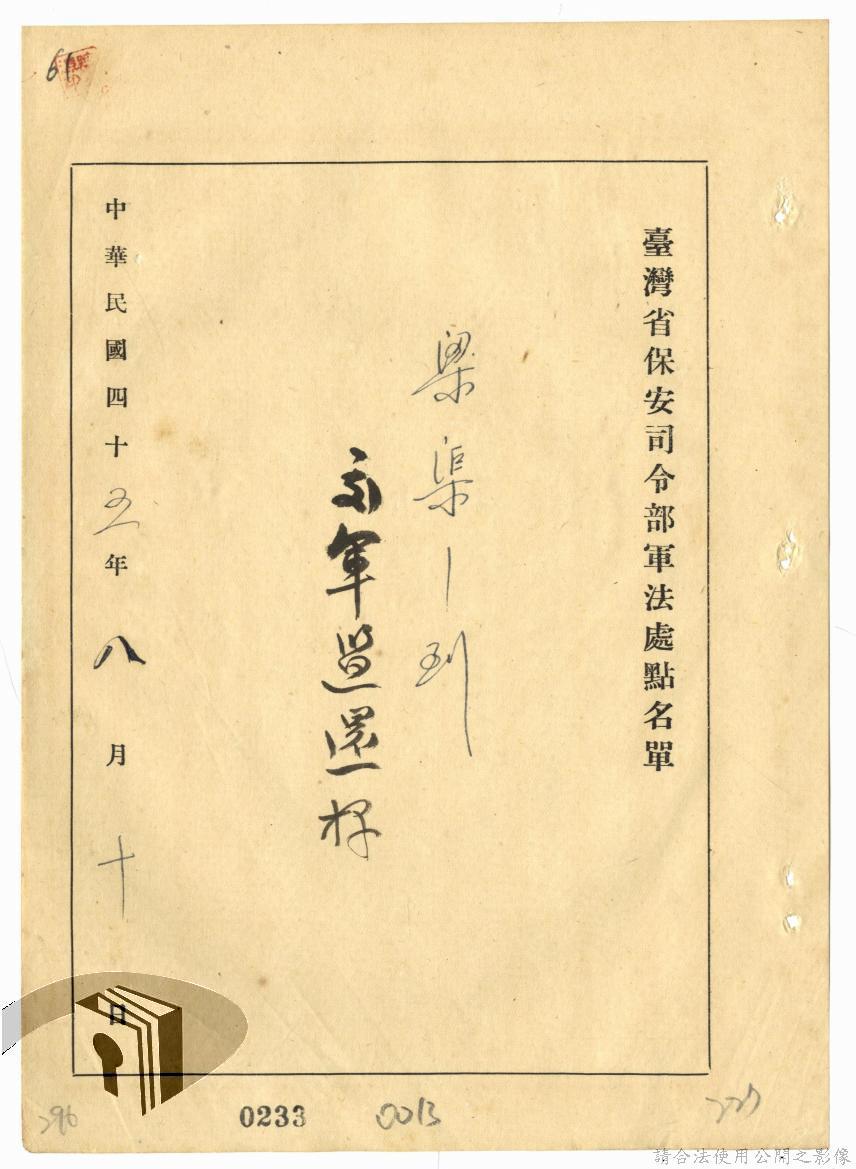 臺灣省保安司令部軍法處點名單
梁渠—到
軍還押
中華民國四十五年八月十日
61
296
0233
0013
227
請合法使用公開之影像